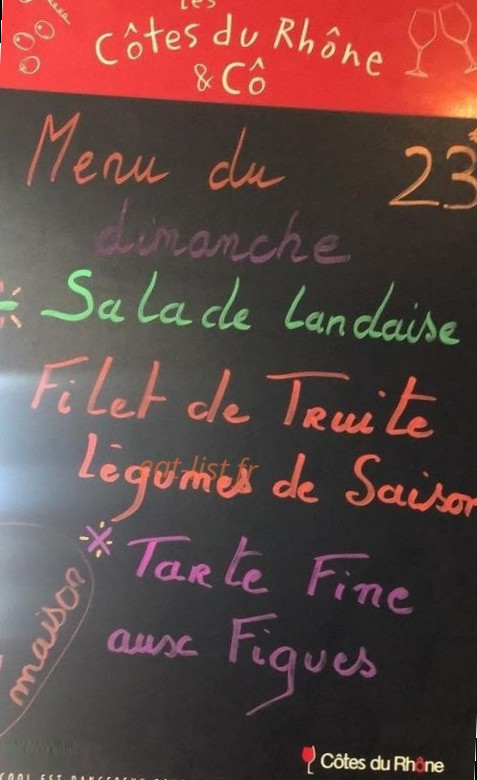 Les
Côtes du Rhône
& Cô
Menu du 23
dimanche
Salade Landaise
Filet de Truite
légumes de Saison
eat-list.fr
Tarte Fine
aux Figues
maison
Côtes du Rhône